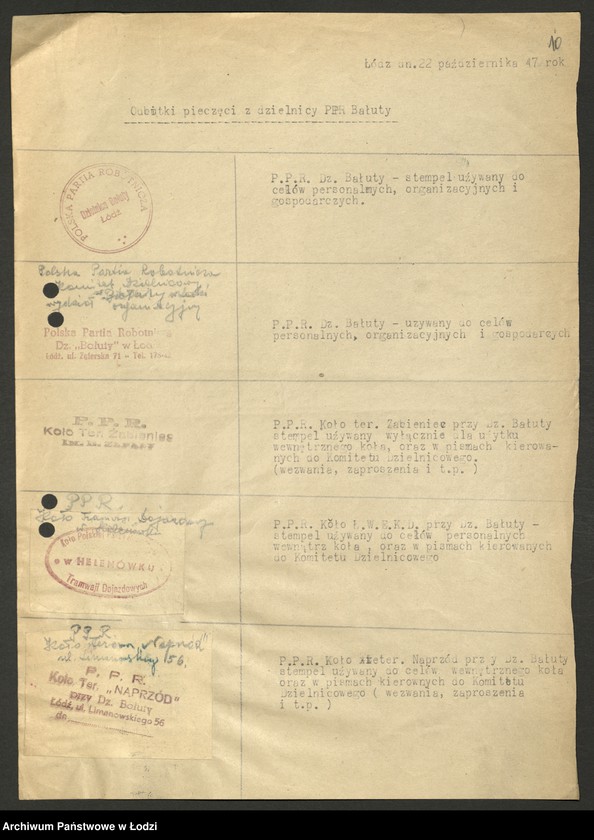 10
Łódź dn.22 października 47 rok
Odbitki pieczęci z dzielnicy PPR Bałuty
POLSKA PARTJA ROBOTNICZA
Dzielnica Bałuty
Łódź
P.P.R. Dz. Bałuty - stempel używany do
celów personalnych, organizacyjnych i
gospodarczych.
Polska Partia Robotnicza
Komitet Dzielnicowy
wydział
organizacyjny
Polska Partia Robotnicza
Dz. „Bałuty" w Łodzi
Łódź, ul. Zgierska 71 - Tel.
P.P.R. Dz. Bałuty - uzywany do celów
personalnych, organizacyjnych i gospodarczych
P. P. R.
Koło Ter. Żabieniec
P.P.R. Koło ter. Żabieniec przy Dz. Bałuty
stempel używany wyłącznie dla użytku
wewnętrznego koła, oraz w pismach kierowa-
nych do Komitetu Dzielnicowego.
(wezwania, zaproszenia i t.p. )
P.P.R.
Koło Tramwai Dojazdowy
Koło Polskiej
w HELENÓWKU
Tramwaji Dojazdowych
P.P.R. Koło Ł.W.E.K.D. przy Dz. Bałuty -
stempel używany do celów personalnych
wewnątrz koła , oraz w pismach kierowanych
do Komitetu Dzielnicowego
P.P.R.
Koło Terenu „Naprzód"
ul. Limanowskiego 156.
P. P. R.
Koło Ter. „NAPRZÓD"
przy Dz. Bałuty
Łódź, ul. Limanowskiego 56
dn
P.P.R. Koło ter. Naprzód przy Dz. Bałuty
stempel używany do celów wewnętrznego koła
oraz w pismach kierownych do Komitetu
Dzielnicowego ( wezwania, zaproszenia
i t.p. )
Archiwum Państwowe w Łodzi